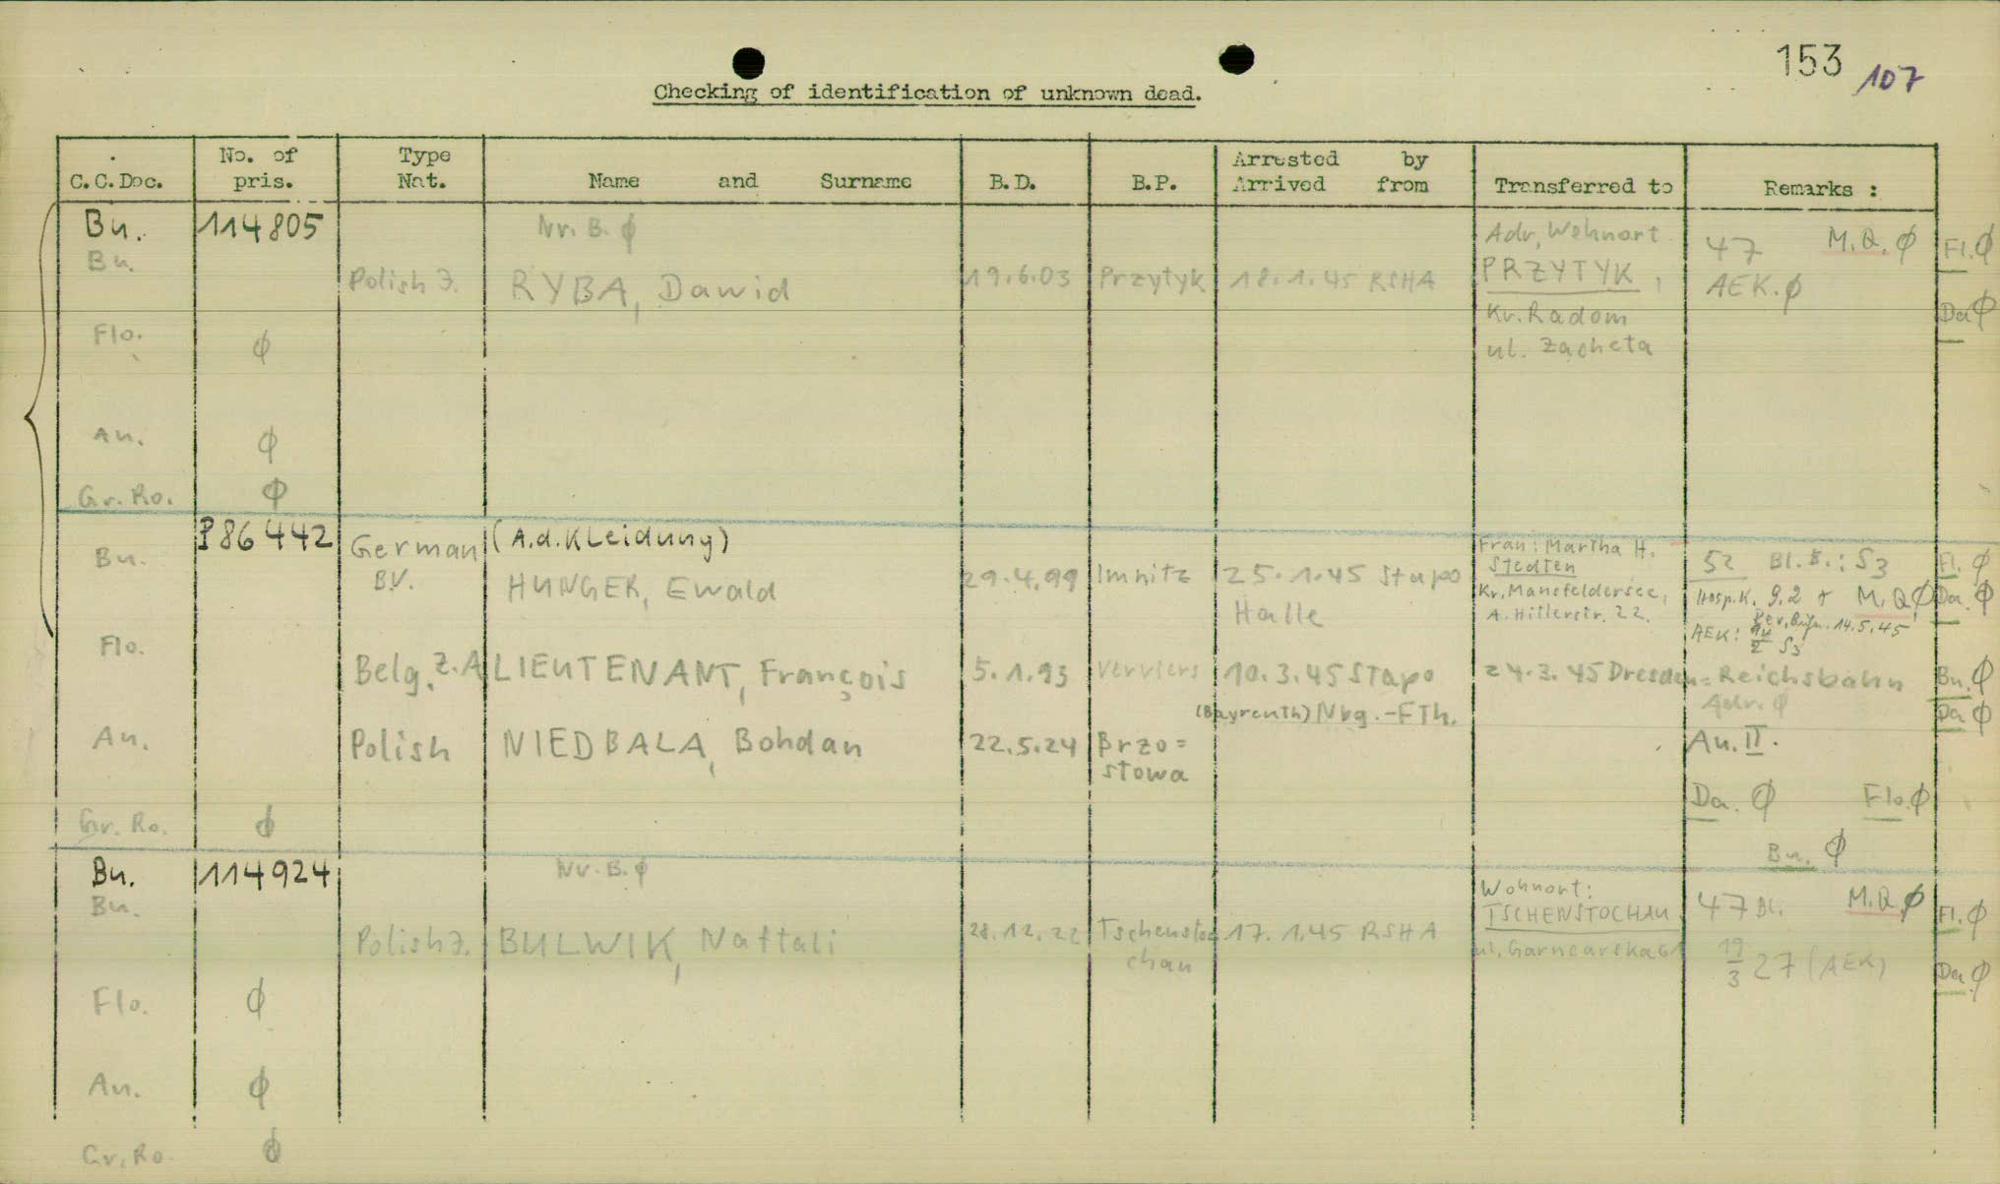 153 107
Checking of identification of unknown dead.
C.C.Doc. No. of pris. Type Nat. Name and Surname B.D. B.P. Arrested by Arrived from Transferred to Remarks :
Bu. 114805 Nr. B. ϕ Adr, Wohnort 47 M.Q. ϕ Fl. ϕ
Bu. Polish J. RYBA, Dawid 19.6.03 Przytyk 18.1.45 RSHA PRZYTYK, AEK. ϕ
Kr. Radom Da ϕ
Flo. ϕ ul. Zacheta
An. ϕ
Gr. Ro. ϕ
?86442 German (A.d.Kleidung) Frau: Martha H.
Bu. B.V. HUNGER, Ewald 29.4.99 Imnitz 25.1.45 Stapo Stedten 52 Bl. 5.: 53 Fl. ϕ
Halle Kr. Mansfeldersee, Hosp.K. 9.2 M.Q ϕ Da. ϕ
A. Hitlerstr. 22. 14.5.45
Flo. AEK: 53
Belg. Z.A LIEUTENANT, François 5.1.93 Verviers 10.3.45 Stapo 24.3.45 Dresden= Reichsbahn Bu. ϕ
(Bayreuth) Nbg.-FTh. Adr. ϕ Da ϕ
An. Polish NIEDBALA, Bohdan 22.5.24 Brzo= An. II.
stowa
Da. ϕ Flo. ϕ
Gr. Ro. ϕ
Bu. ϕ
Bu. 114924 Nr. B. ϕ Wohnort: 47 Bl. M.Q ϕ
Bu. TSCHENSTOCHAU Fl. ϕ
Polish J. BULWIK, Naftali 28.12.22 Tschensto 17.1.45 RSHA ul. Garncarska 61 19/3 27 (AEK)
chau Da. ϕ
Flo. ϕ
An. ϕ
Gr. Ro. ϕ